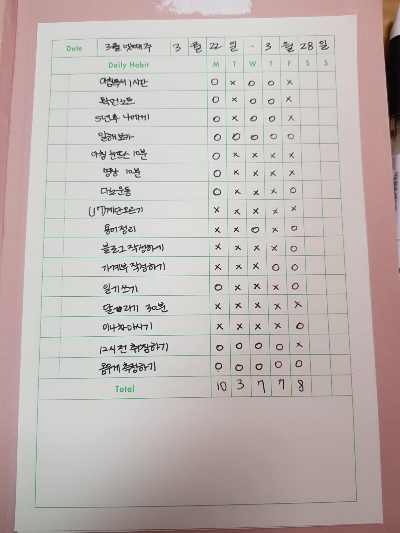 Date 3월 넷째 주 3 월 22 일 - 3 월 28 일
Daily Habit M T W T F S S
아침독서 1시간 O x O O x
확언노트 O x O O x
5년후 나에게 O x O O x
일해보카 O O O O O
아침 눈뜨고 10분 O x x x x
명상 10분 O x x x x
다노운동 O x x x O
계단오르기 x x x x x
용어정리 x x O x O
블로그 작성하기 x x x x O
가계부 작성하기 x x x O O
일기쓰기 O x x x O
달리기 30분 x x x x x
마시기 x x x x O
12시 전 취침하기 O O O O x
몸무게 측정하기 O O O O O
Total 10 3 7 7 8